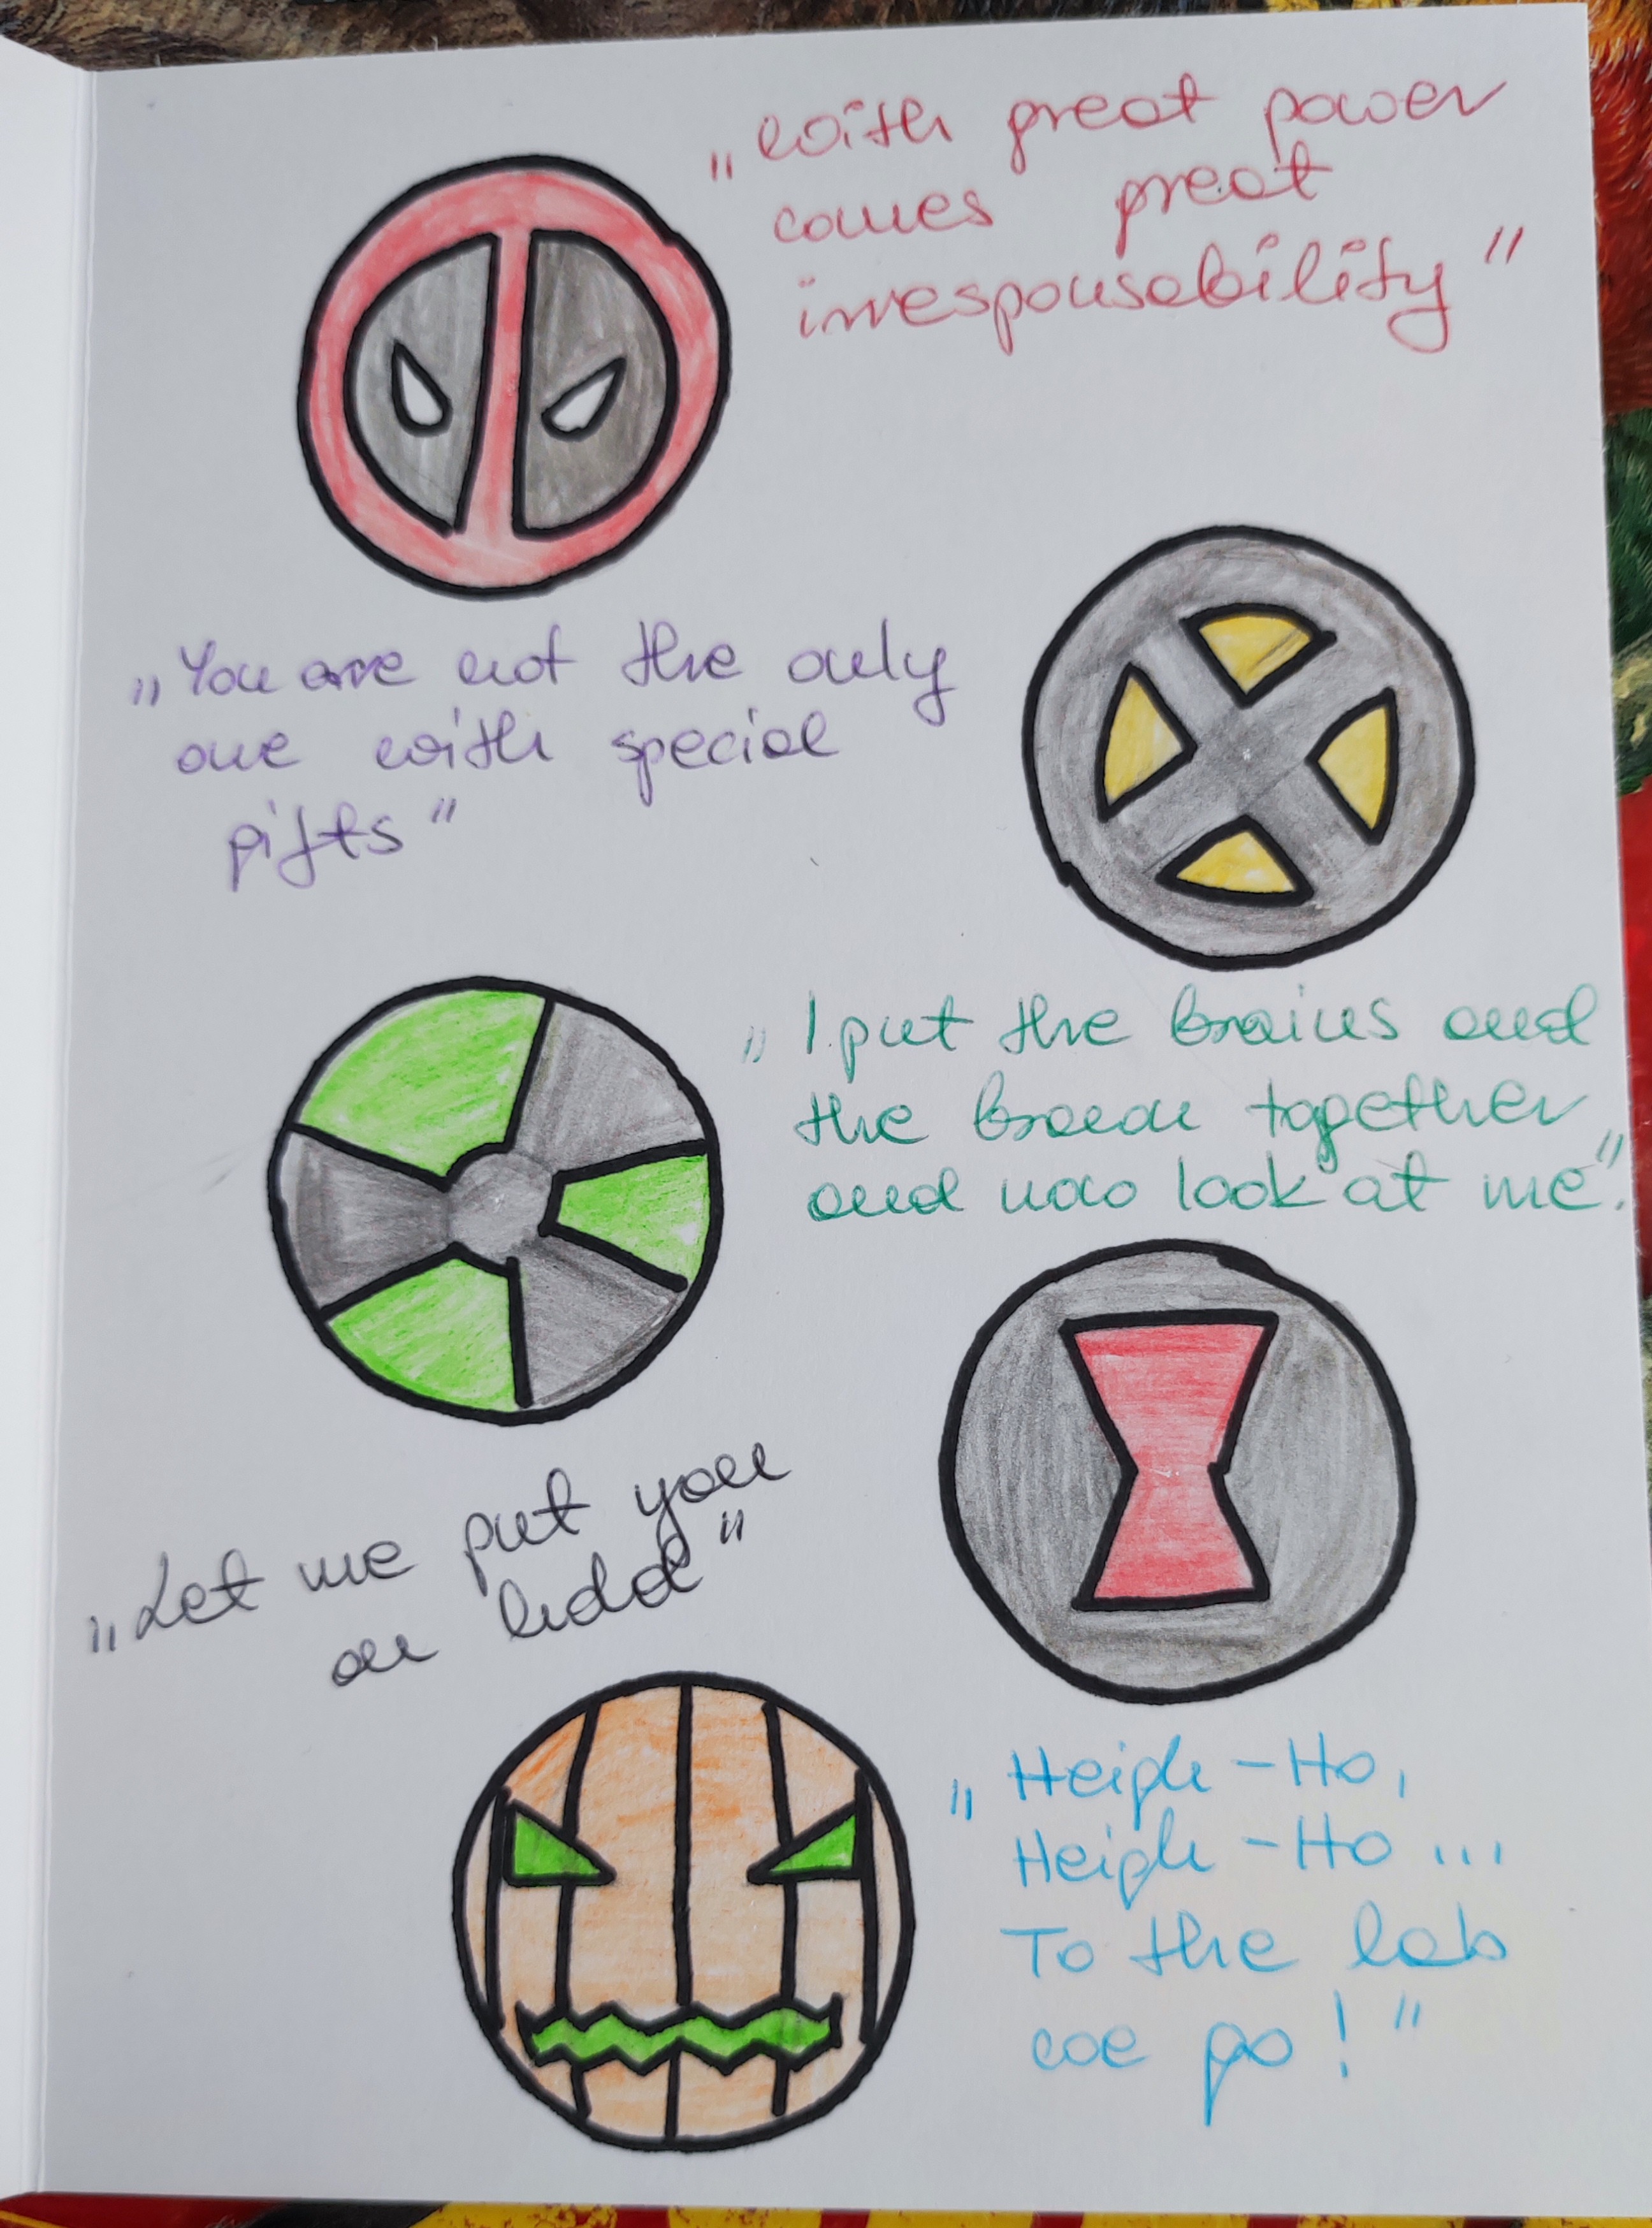 „With great power
comes great
irresponsability"
„You are not the only
one with special
gifts"
„I put the brains and
the brawn together
and now look at me".
„Let me put you
on hold"
„Heigh-Ho,
Heigh-Ho...
To the lab
we go!"